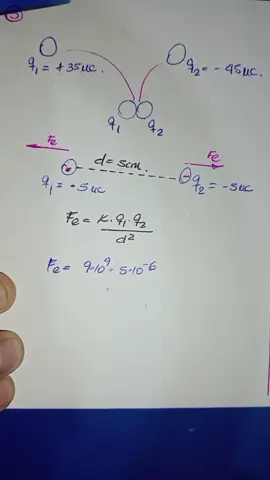 q₁ = +35µc.
q₂ = -45µc.
q₁ q₂
Fe
Fe
d = 5cm.
q₁ = -5µc
q₂ = -5µc
Fe = K·q₁·q₂
d²
Fe = 9·10⁹·5·10⁻⁶